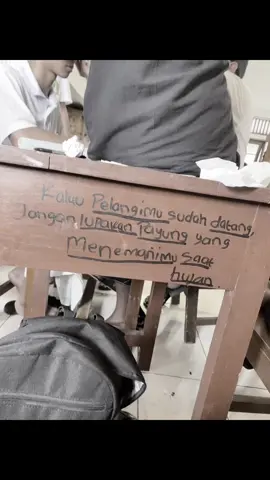 Kalau Pelangimu sudah datang,
Jangan lupakan payung yang
Menemanimu saat
hujan.